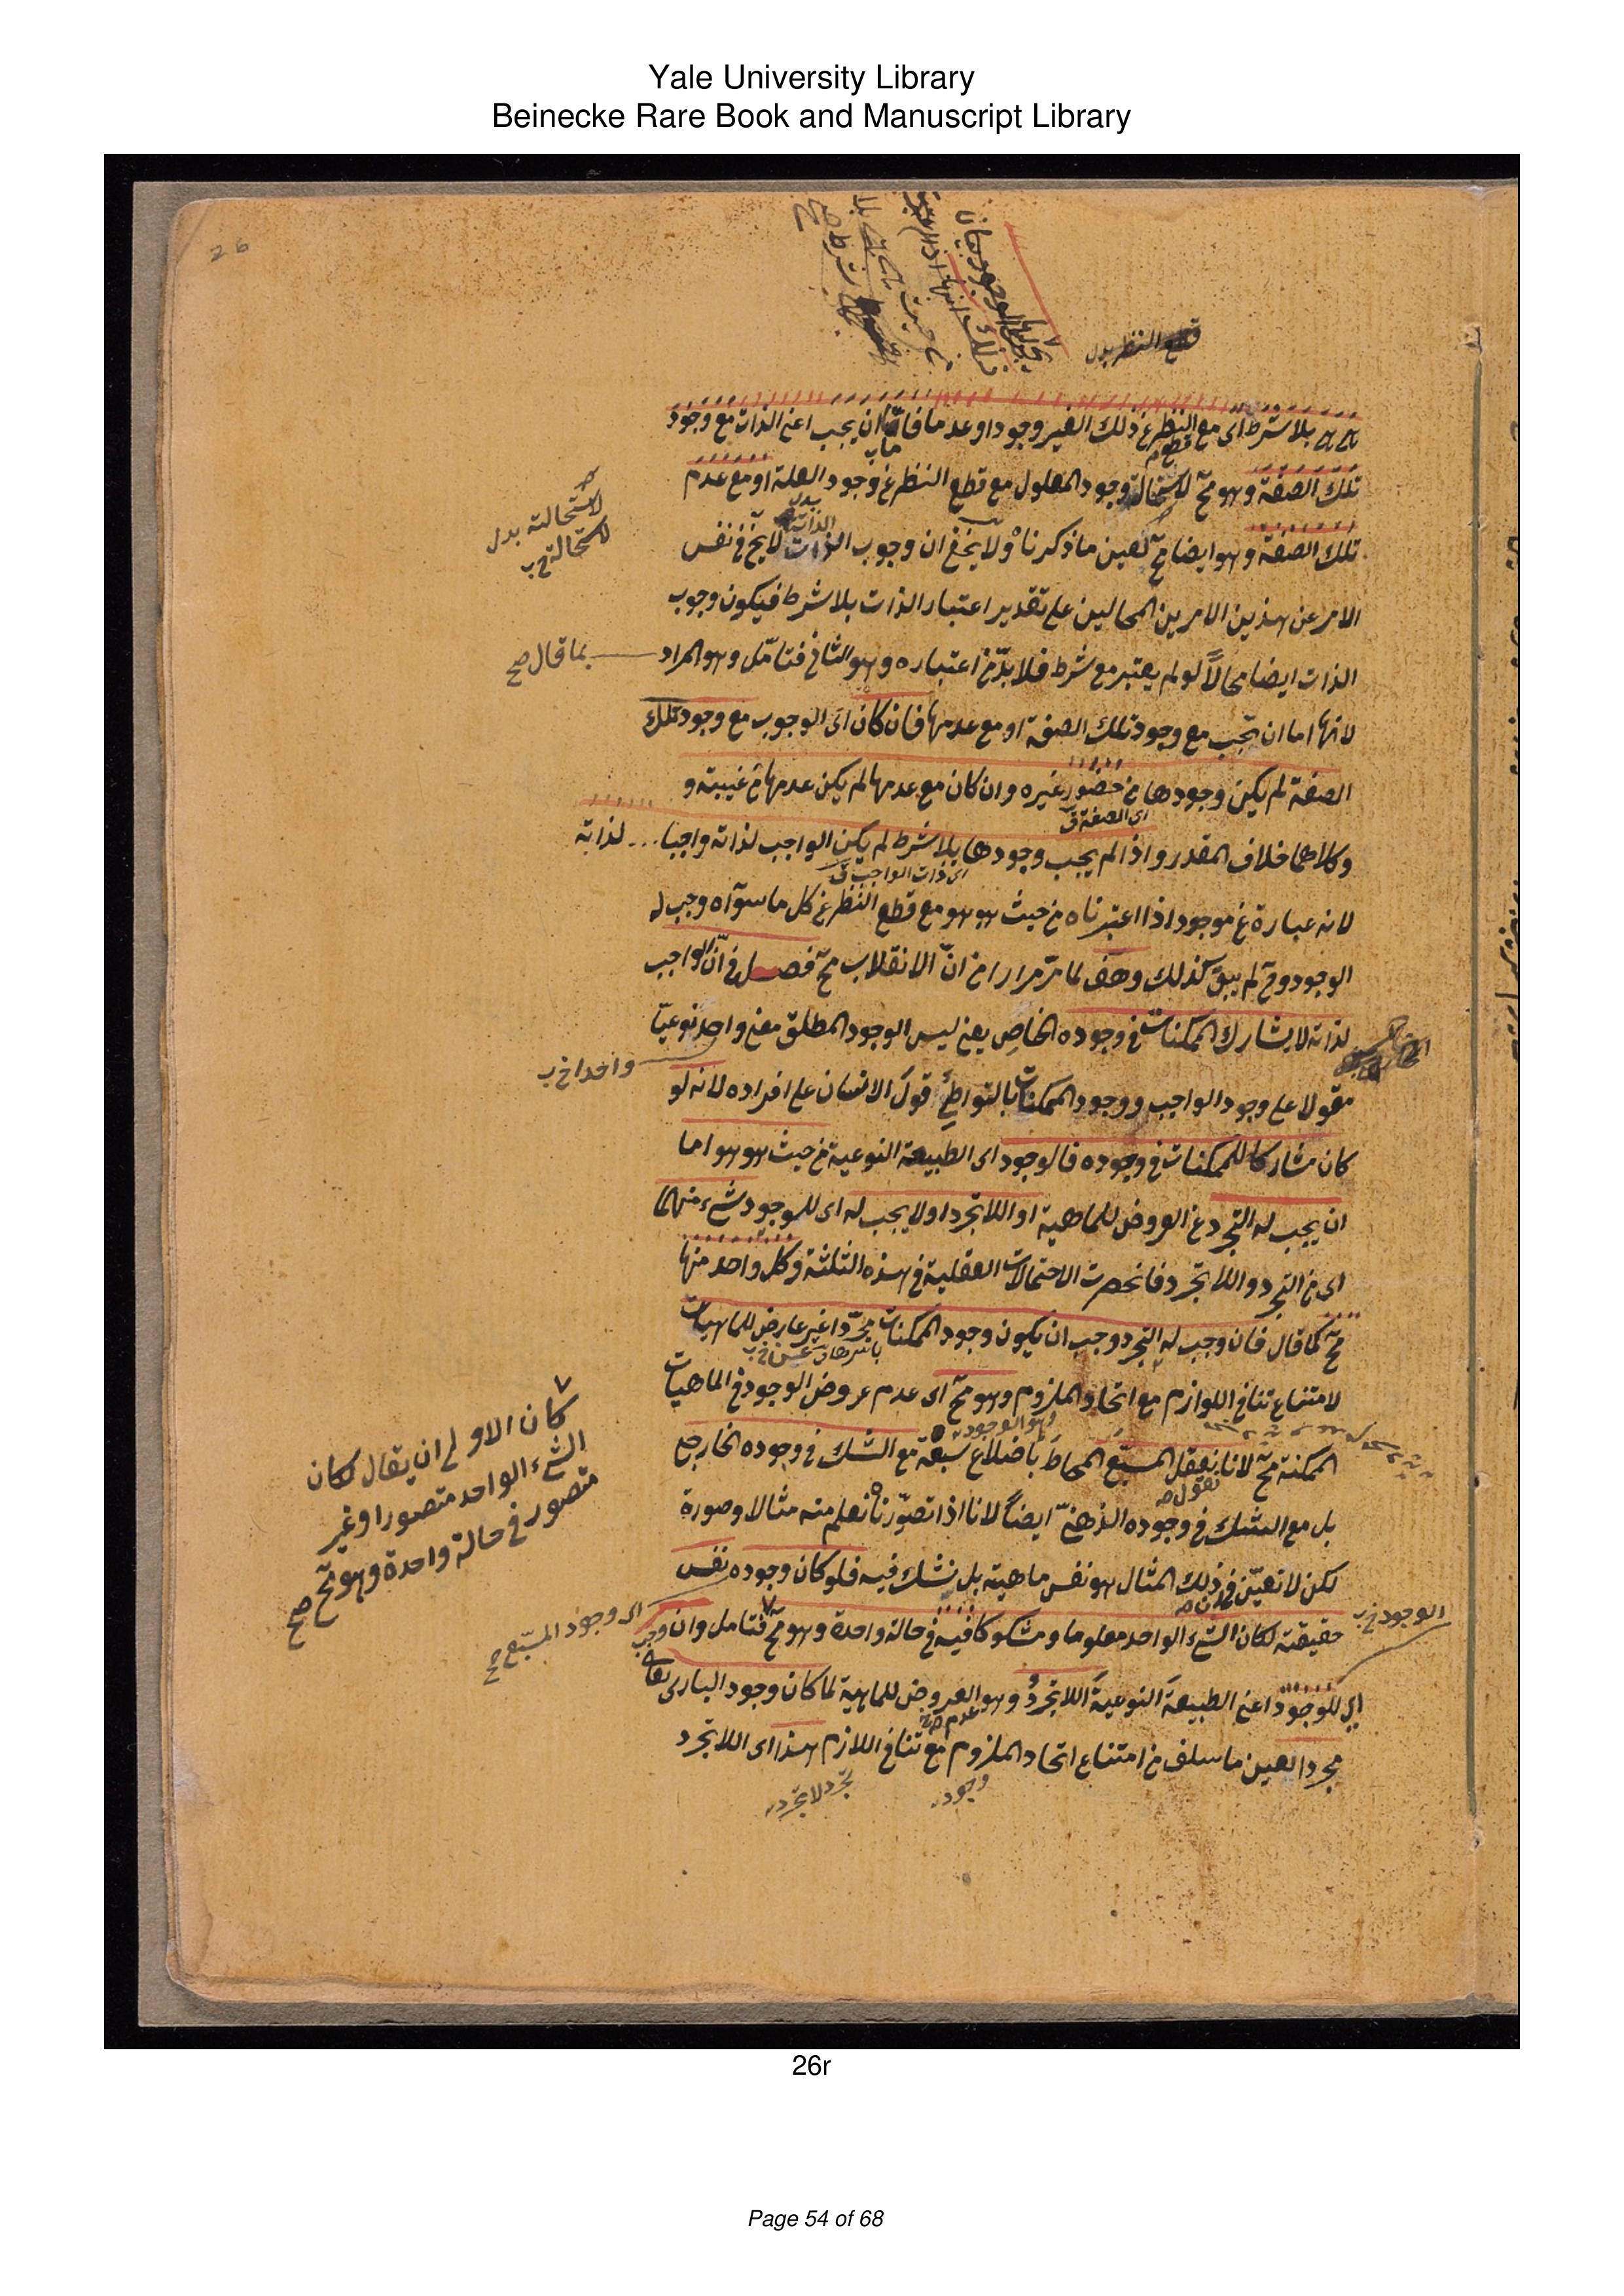 Yale University Library
Beinecke Rare Book and Manuscript Library
26
قطع النظر بدل
هي هي بلا شرط اى مع النظر عن ذلك الغير وجودا او عدما فاما ان يجب اعنى الذات مع وجود
قطع
تلك الصفة وهو مح لاستحالة وجود المعلول مع قطع النظر عن وجود العلة او مع عدم
لاستحالته بدل
لاستحالة خ ب
تلك الصفة وهو ايضا مح لعين ما ذكرناه ولا يخفى ان وجوب الذات لا يخ في نفس
الامر عن هذين الامرين المحالين على تقدير اعتبار الذات بلا شرط فيكون وجوب
الذات ايضا محالا لو لم يعتبر مع شرط فلا بد من اعتباره وهو الثانى فتامل وهو المراد
بما قال صح
لانها اما ان تجب مع وجود تلك الصفة او مع عدمها فان كان اى الوجوب مع وجود تلك
الصفة لم يكن وجودها من حضور غيره وان كان مع عدمها لم يكن عدمها من غيبته و
اى الصفة ق
وكلاهما خلاف المقدر واذا لم يجب وجودها بلا شرط لم يكن الواجب لذاته واجبا لذاته
اى ذات الواجب ق
لانه عبارة عن موجود اذا اعتبرناه من حيث هو هو مع قطع النظر عن كل ما سواه وجب له
الوجود وح لم يبق كذلك وهف لما مر مرارا من ان الانقلاب مح فصل في ان الواجب
لذاته لا يشارك الممكنات في وجوده الخاص يعنى ليس الوجود المطلق معنى واحد نوعيا
واحدا خ ب
مقولا على وجود الواجب ووجود الممكنات بالتواطئ قول الانسان على افراده لانه لو
كان مشاركا للممكنات في وجوده فالوجود اى الطبيعة النوعية من حيث هو هو اما
ان يجب له التجرد عن العروض للماهية او اللاتجرد اولا يجب له اى للوجود شئ منهما
اى من التجرد واللاتجرد فانحصرت الاحتمالات العقلية في هذه الثلثة وكل واحد منها
مح كما قال فان وجب له التجرد وجب ان يكون وجود الممكنات مجردا غير عارض للماهيات
لامتناع تنافى اللوازم مع اتحاد الملزوم وهو مح اى عدم عروض الوجود في الماهيات
وهو الوجود
الممكنة مح لانا نعقل المسبع المحاط باضلاع سبعة مع الشك في وجوده الخارجى
نقول صح
بل مع الشك في وجوده الذهنى ايضا لانا اذا تصورناه نعلم منه مثالا وصورة
لكن لا نعين في ذلك المثال هو نفس ماهية بل نشك فيه فلو كان وجوده نفس
حقيقته لكان الشئ الواحد معلوما ومشكوكا فيه في حالة واحدة وهو مح فتامل وان وجب
الوجود خ ب
اى للوجود اعنى الطبيعة النوعية اللاتجرد وهو العروض للماهية لما كان وجود البارى تعالى
مجردا لعين ما سلف من امتناع اتحاد الملزوم مع تنافى اللازم هذا اى اللاتجرد
وجود
تجرد لا تجرد
كان الاولى ان يقال لكان
الشئ الواحد متصورا وغير
متصور في حالة واحدة وهو مح صح
اى وجود المسبع صح
26r
Page 54 of 68